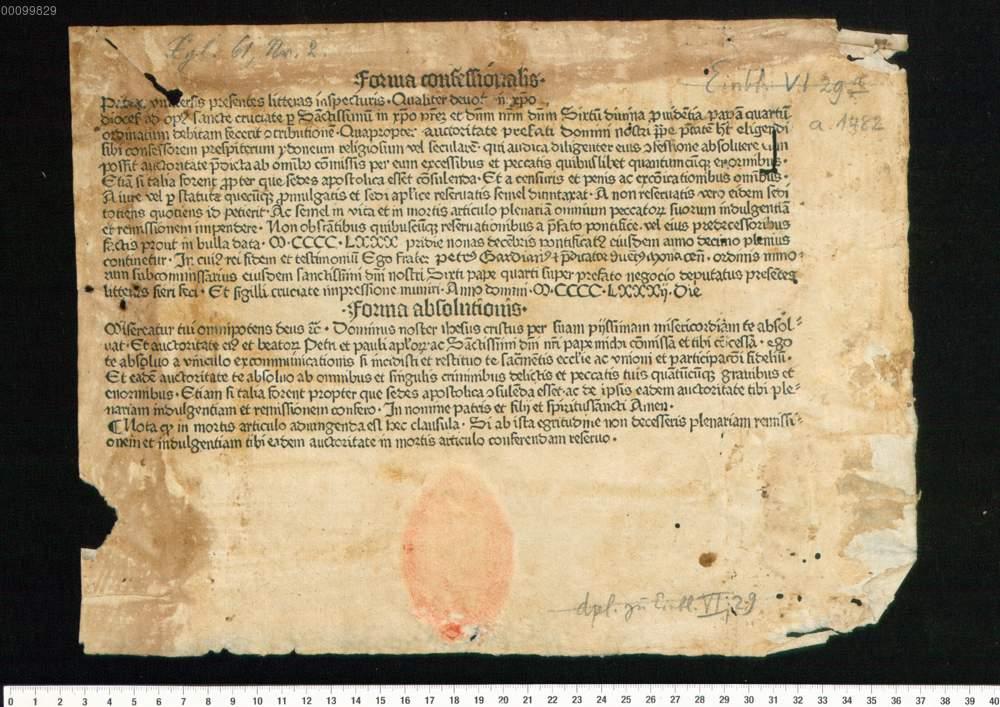 00099829
Xyl. 61, Nr. 2.
Einbl. VI 29
a. 1482
Forma confessionalis.
Pateat vniuersis presentes litteras inspecturis. Qualiter deuot in xp̄o
dioces̄ ad opꝰ sancte cruciate ꝑ Sanctissimū in xp̄o prēz et dnm̄ nrm̄ dnm̄ Sixtū diuina ꝓuidētia papam quartū
ordinatum debitam fecerit ɔtributionē. Quapropter auctoritate prefati domini nostri pp̄e ptatē hꝫ eligendi
sibi confessorem prespiterum ydoneum religiosum vel secularē. qui audita diligenter eius ɔfessione absoluere eum
possit auctoritate p̄dicta ab omībꝰ cōmissis per eum excessibus et peccatis quibuslibet quantumcūqꝫ enormibus.
Etiā si talia forent ꝓpter que sedes apostolica esset cōsulenda. Et a censuris et penis ac excōicationibus omībus.
A iure vel ꝑ statuta quecūqꝫ ꝓmulgatis et sedi aplice reseruatis semel dumtaxat. A non reseruatis vero eidem sedi
totiens quotiens id petierit. Ac semel in vita et in mortis articulo plenariā omnium peccatoꝝ suorum indulgentiā
et remissionem impendere. Non obstātibus quibuscūqꝫ reseruationibus a p̄fato pontifice. vel eius predecessoribus
factis prout in bulla data. M.CCCC.LXXX pridie nonas decēbris pontificatꝰ eiusdem anno decimo plenius
continetur. In cuiꝰ rei fidem et testimoniū Ego frater petrꝰ Gardiani ordinis mino⸗
rum subcommissarius eiusdem sanctissimi dni nostri Sixti pape quarti super prefato negocio deputatus presentes
litteras fieri feci. Et sigilli cruciate impressione muniri. Anno domini. M.CCCC.LXXXij. Die
.Forma absolutionis.
Misereatur tui omnipotens deus ꝛc̄. Dominus noster ihesus cristus per suam pijssimam misericordiam te absol⸗
uat. Et auctoritate eiꝰ et beatoꝝ Petri et pauli apl̄oꝝ ac Sanctissimi dn̄i nr̄i pape michi cōmissa et tibi cōcessa. ego
te absoluo a vinculo excommunicationis si incidisti et restituo te sacmētis ecclie ac vnioni et participacōi fideliū.
Et eadē auctoritate te absoluo ab omnibus et singulis criminibus delictis et peccatis tuis quātūcūqꝫ grauibus et
enormibus. Etiam si talia forent propter que sedes apostolica ɔsulēda esset. ac de ipsis eadem auctoritate tibi ple⸗
nariam indulgentiam et remissionem confero. In nomine patris et filij et spiritussancti Amen.
¶ Nota ꝙ in mortis articulo adiungenda est hec clausula. Si ab ista egritudine non decesseris plenariam remissi⸗
onem et indulgentiam tibi eadem auctoritate in mortis articulo conferendam reseruo.
dpl. zu Einbl. VI, 29
0 1 2 3 4 5 6 7 8 9 10 11 12 13 14 15 16 17 18 19 20 21 22 23 24 25 26 27 28 29 30 31 32 33 34 35 36 37 38 39 40